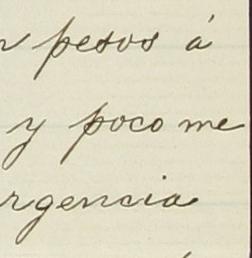 pesos á
y poco me
rgencia